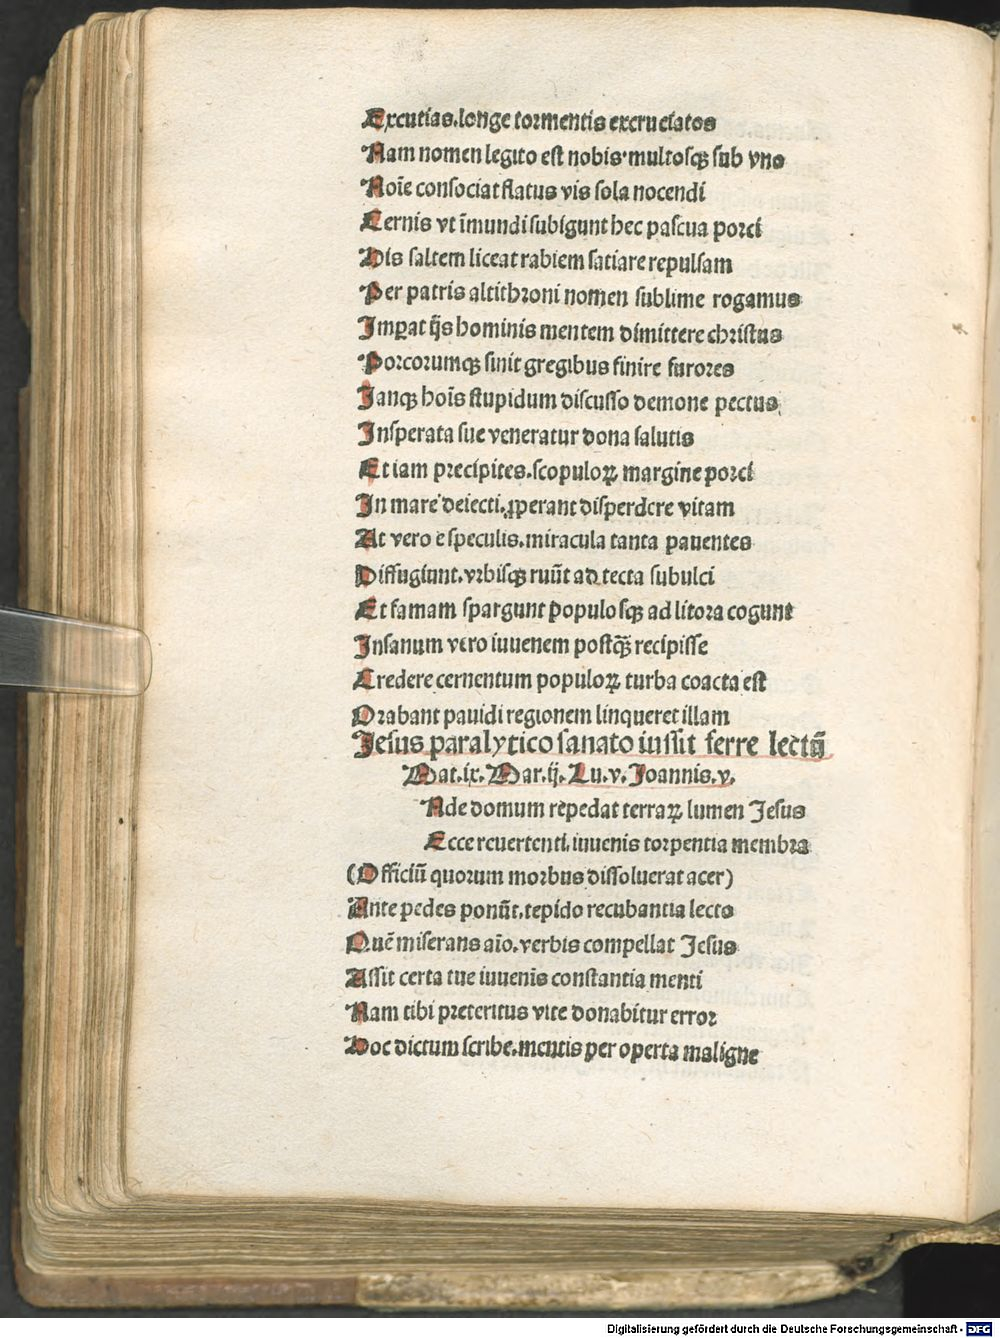 Excutias.longe tormentis excruciatos
Nam nomen legito est nobis·multosqꝫ sub vno
Noīe consociat flatus vis sola nocendi
Cernis vt īmundi subigunt hec pascua porci
His saltem liceat rabiem satiare repulsam
Per patris altithroni nomen sublime rogamus
Imꝑat ijs hominis mentem dimittere christus
Porcorumqꝫ sinit gregibus finire furores
Janqꝫ hoīs stupidum discusso demone pectus
Insperata sue veneratur dona salutis
Et iam precipites.scopuloꝝ margine porci
In mare deiecti.ꝓperant disperdere vitam
At vero e speculis.miracula tanta pauentes
Diffugiunt.vrbisqꝫ ruūt ad tecta subulci
Et famam spargunt populosqꝫ ad litora cogunt
Insanum vero iuuenem postq̄ꝫ recipisse
Credere cernentum populoꝝ turba coacta est
Orabant pauidi regionem linqueret illam
Jesus paralytico sanato iussit ferre lectū
Mat.ix.Mar.ij.Lu.v.Joannis.v.
Nde domum repedat terraꝝ lumen Jesus
Ecce reuertenti.iuuenis torpentia membra
(Officiū quorum morbus dissoluerat acer)
Ante pedes ponūt.tepido recubantia lecto
Quē miserans aīo.verbis compellat Jesus
Assit certa tue iuuenis constantia menti
Nam tibi preteritus vite donabitur error
Hoc dictum scribe.mentis per operta maligne
Digitalisierung gefördert durch die Deutsche Forschungsgemeinschaft - DFG